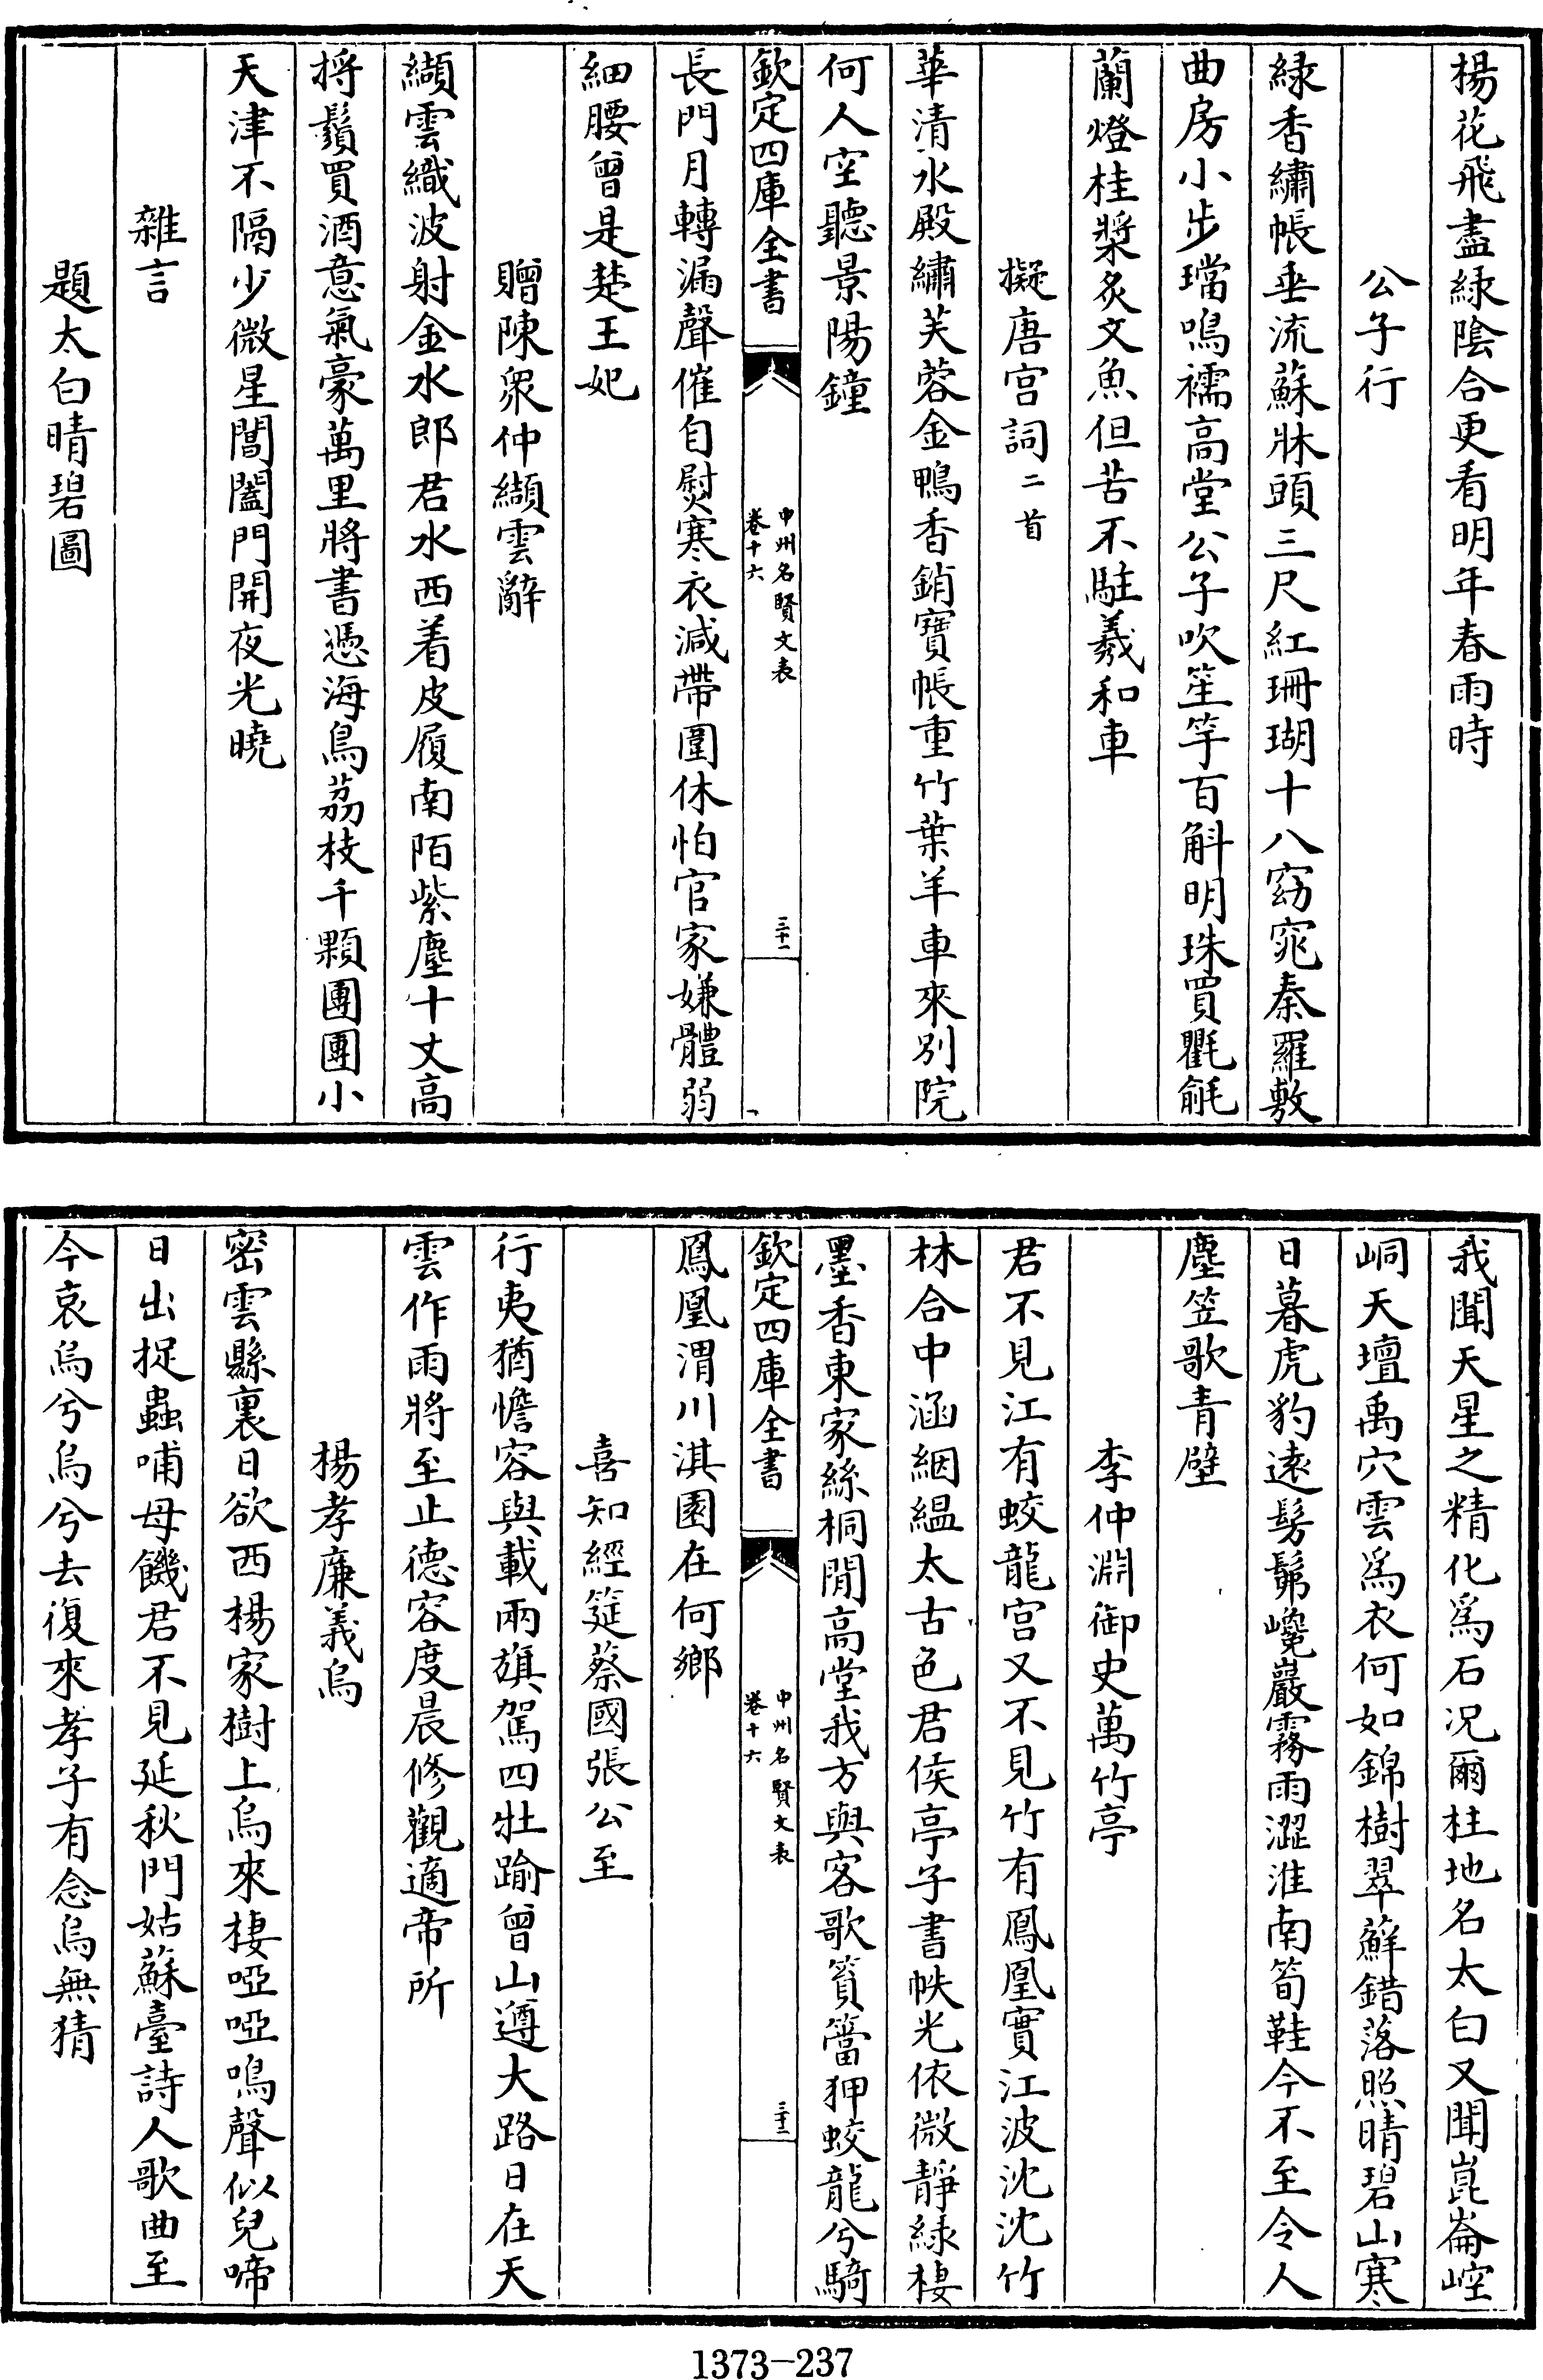 楊花飛盡緑陰合更看明年春雨時
公子行
緑香繡帳垂流蘇牀頭三尺紅珊瑚十八窈窕秦羅敷
曲房小步璫鳴襦高堂公子吹笙竽百斛明珠買氍毹
蘭燈桂槳炙文魚但苦不駐羲和車
擬唐宮詞二首
華清水殿繡芙蓉金鴨香銷寶帳重竹葉羊車來別院
何人空聽景陽鐘
欽定四庫全書
中州名賢文表
卷十六
三十一
長門月轉漏聲催自熨寒衣減帶圍休怕官家嫌體弱
細腰曾是楚王妃
贈陳衆仲纈雲辭
纈雲織波射金水郎君水西着皮履南陌紫塵十丈高
捋鬚買酒意氣豪萬里將書憑海鳥荔枝千顆團團小
天津不隔少微星閶闔門開夜光曉
雜言
題太白晴碧圖
我聞天星之精化爲石况爾柱地名太白又聞崑崙崆
峒天壇禹穴雲爲衣何如錦樹翠蘚錯落照晴碧山寒
日暮虎豹遠髣髴巉巖霧雨澀淮南筍鞋今不至令人
塵笠歌青壁
李仲淵御史萬竹亭
君不見江有蛟龍宮又不見竹有鳳凰實江波沈沈竹
林合中涵絪縕太古色君侯亭子書帙光依微靜緑棲
墨香東家絲桐閒高堂我方與客歌篔簹狎蛟龍兮騎
欽定四庫全書
中州名賢文表
卷十六
三十二
鳳凰渭川淇園在何鄉
喜知經筵蔡國張公至
行夷猶憺容與載兩旗駕四壯踰曾山遵大路日在天
雲作雨將至止德容度晨修觀適帝所
楊孝廉義烏
密雲縣裏日欲西楊家樹上烏來棲啞啞鳴聲似兒啼
日出捉蟲哺母饑君不見延秋門姑蘇臺詩人歌曲至
今哀烏兮烏兮去復來孝子有念烏無猜
1373-237